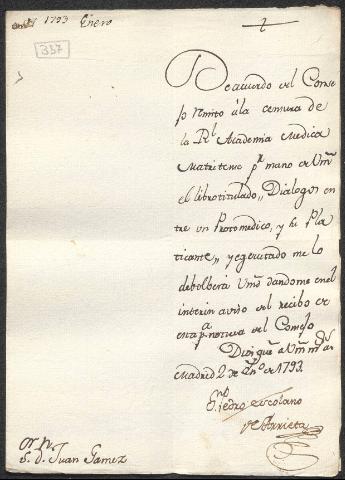 1793 Enero
337
De acuerdo del Conse
jo remito á la censura de
la Rl. Academia Medica
Matritense pr. mano de Vm
el libro titulado, Dialogos en
tre un Protomedico, y su Pla
ticante, y egecutado me lo
debolberá Vmd dandome en el
interin aviso del recibo de
esta pa. noticia del Consejo
Dios gue. a Vm ms. as.
Madrid 2 de Eno. de 1793.
Dn. Pedro Escolano
de Arrieta
Sr. D. Juan Gamez